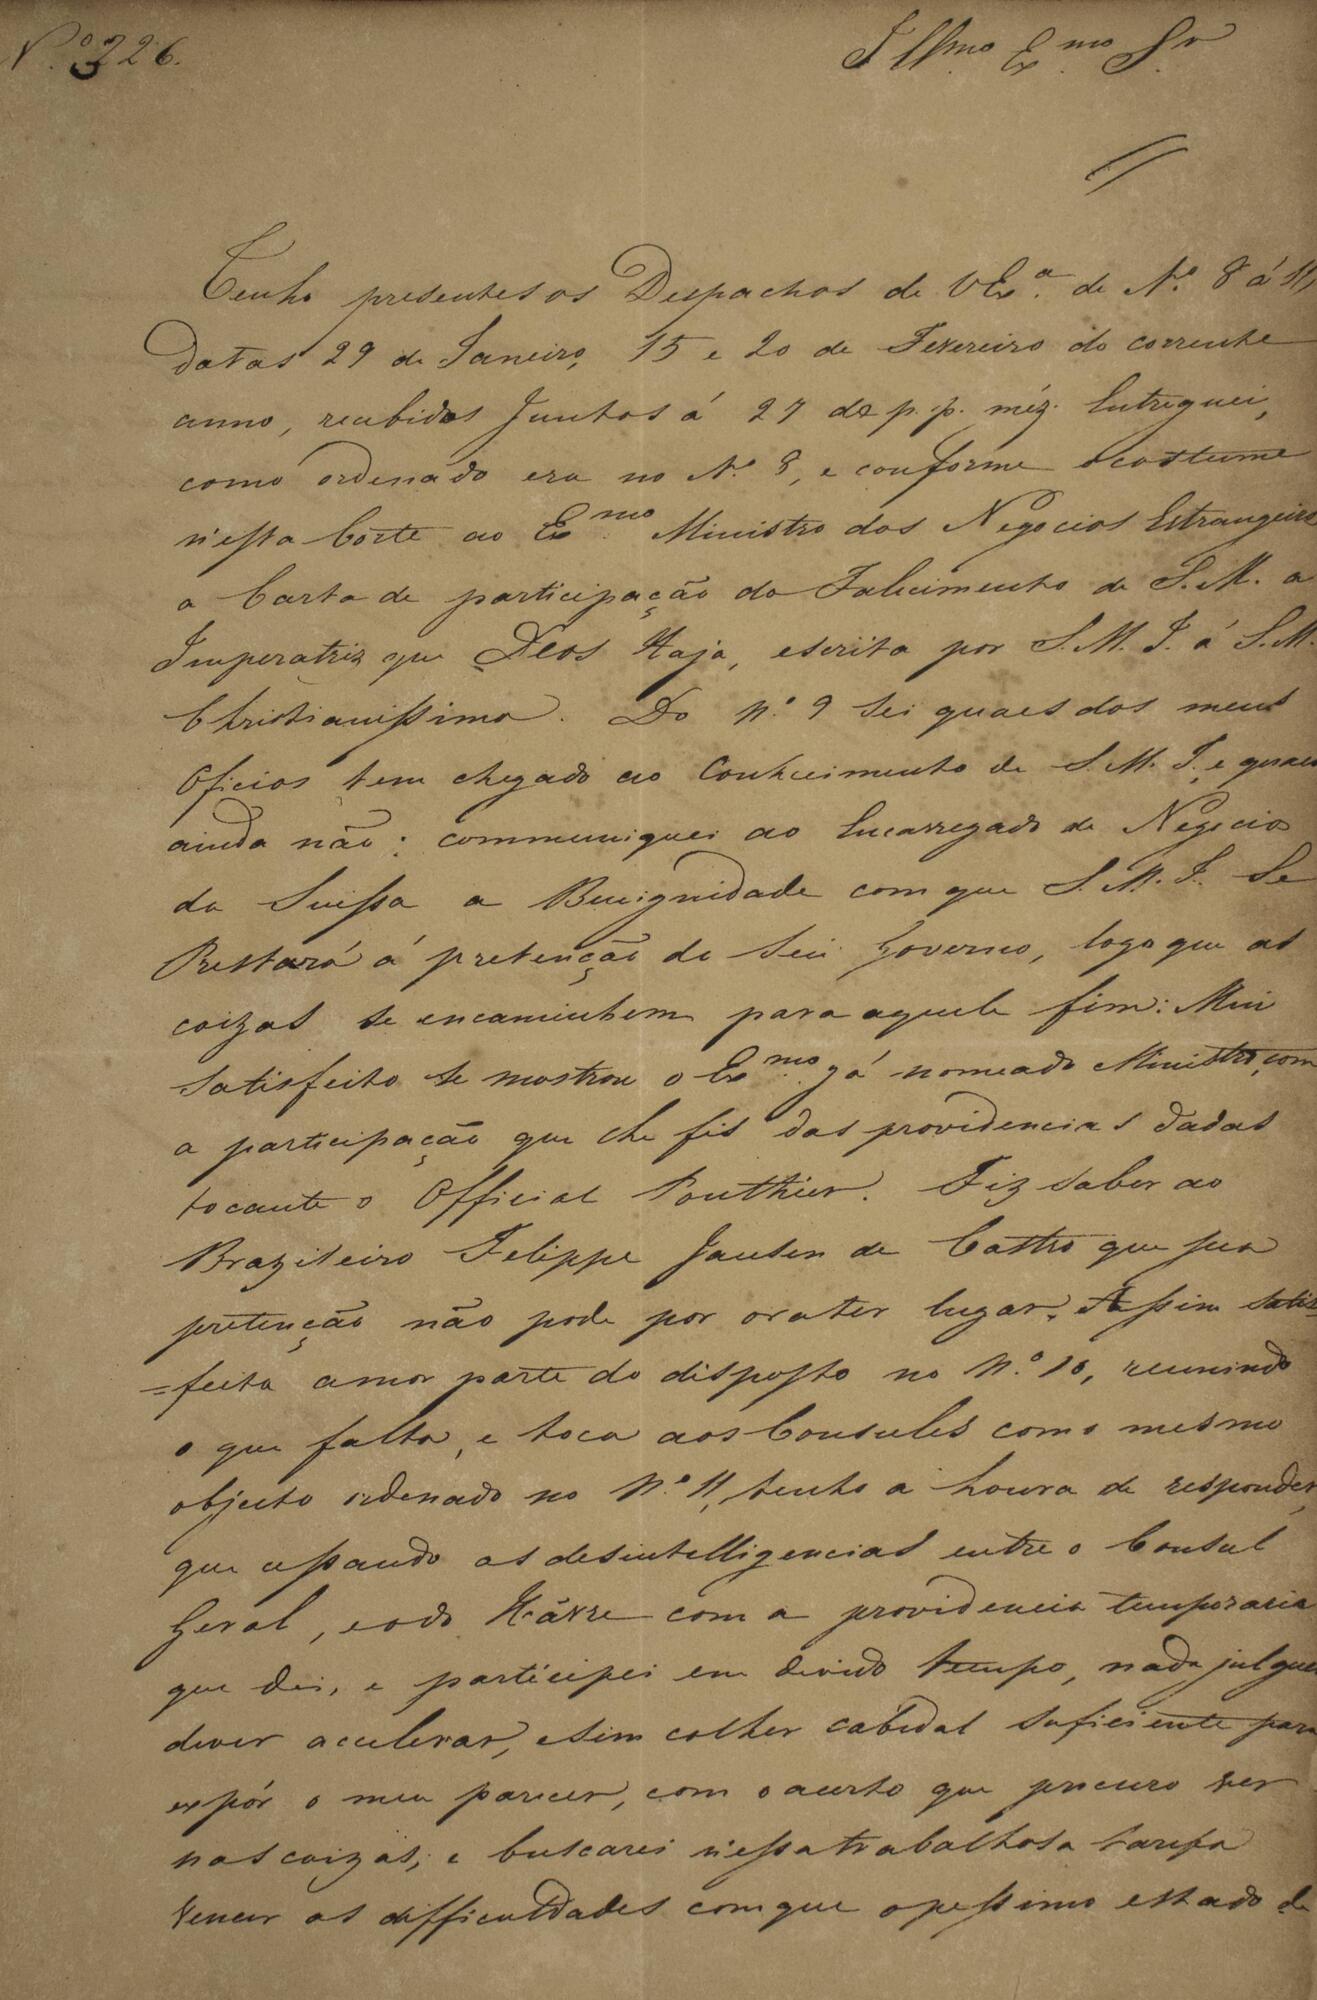 N.º 226.
Illmo Exmo Sr
Tenho presentes os Despachos de V Exª. de Nº. 8 á 11,
datas 29 de Janeiro, 15 e 20 de Fevereiro do corrente
anno, recebidos juntos á 27 do p. p. méz. Entreguei,
como ordenado era no Nº. 8, e conforme o costume
n'esta Côrte ao Exmo Ministro dos Negocios Estrangeiros
a Carta de participação do Falecimento de S. M. a
Imperatriz que Deos Haja, escrita por S. M. I. á S. M.
Christianissima. Do Nº. 9 sei quaes dos meus
Oficios tem chegado ao Conhecimento de S. M. I. e quaes
ainda não: communiquei ao Encarregado de Negocios
da Suissa a Benignidade com que S. M. I. Se
Prestará á pretenção do Seu Governo, logo que as
coizas se encaminhem para aquele fim: Mui
satisfeito se mostrou o Exmo já nomeado Ministro, com
a participação que lhe fis das providencias dadas
tocante o Official Pouthier. Fiz saber ao
Brazileiro Felippe Jansen de Castro que sua
pretenção não pode por ora ter lugar. Assim satis-
=feita a mor parte do disposto no Nº. 10, reunindo
o que falta, e toca aos Consules como mesmo
objecto ordenado no Nº. 11, tenho a honra de responder,
que cessando as desintelligencias entre o Consul
Geral, e o do Hâvre com a providencia temporaria
que dei, e participei em devido tempo, nada julguei
dever accelerar, e sim colher cabedal suficiente para
expôr o meu parecer, com o acerto que procuro ver
nas coizas, e buscarei n'essa trabalhosa tarefa
vencer as difficuldades com que o pessimo estado de